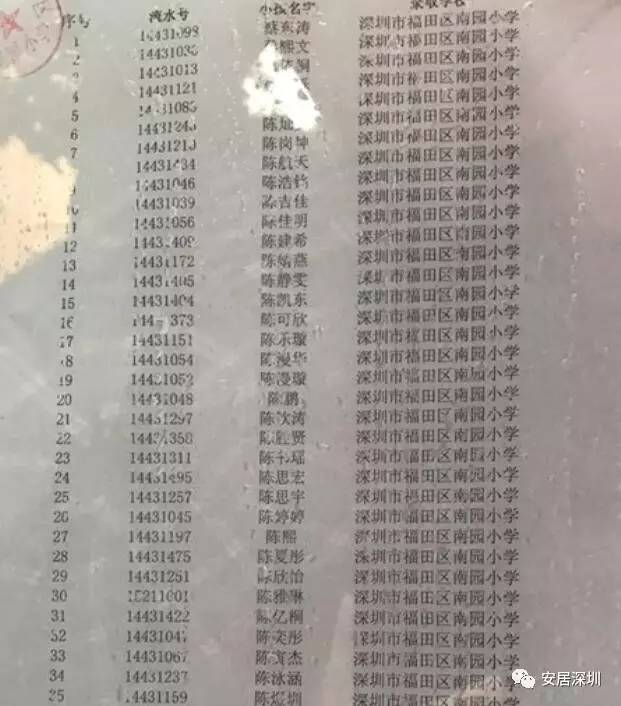 序号 流水号 小孩名字 录取学校
1 14431098 蔡东涛 深圳市福田区南园小学
2 14431030 文 深圳市福田区南园小学
3 14431013 深圳市福田区南园小学
4 14431121 深圳市福田区南园小学
5 14431085 深圳市福田区南园小学
6 14431243 陈 深圳市福田区南园小学
7 14431213 陈岗坤 深圳市福田区南园小学
14431434 陈航天 深圳市福田区南园小学
9 14431046 陈浩钧 深圳市福田区南园小学
10 14431039 陈吉佳 深圳市福田区南园小学
11 14431056 陈佳明 深圳市福田区南园小学
12 14431409 陈建希 深圳市福田区南园小学
13 14431172 陈婧燕 深圳市福田区南园小学
14 14431405 陈静雯 深圳市福田区南园小学
15 14431404 陈凯东 深圳市福田区南园小学
16 144 373 陈可欣 深圳市福田区南园小学
17 14431151 陈乐璇 深圳市福田区南园小学
18 14431054 陈漫华 深圳市福田区南园小学
19 14431052 陈漫璇 深圳市福田区南园小学
20 14431048 陈鹏 深圳市福田区南园小学
21 14431297 陈钦涛 深圳市福田区南园小学
22 14431358 陈 贤 深圳市福田区南园小学
23 14431311 陈书瑶 深圳市福田区南园小学
24 14431495 陈思宏 深圳市福田区南园小学
25 14431257 陈思宇 深圳市福田区南园小学
26 14431045 陈婷婷 深圳市福田区南园小学
27 14431197 陈熙 深圳市福田区南园小学
28 14431475 陈夏彤 深圳市福田区南园小学
29 14431251 陈欣怡 深圳市福田区南园小学
30 15211001 陈雅琳 深圳市福田区南园小学
31 14431422 陈亿桐 深圳市福田区南园小学
32 14431047 陈奕彤 深圳市福田区南园小学
33 14431067 陈 杰 深圳市福田区南园小学
34 14431237 陈泳涵 深圳市福田区南园小学
35 14431159 陈煜圳 深圳市福田区南园小学
安居深圳